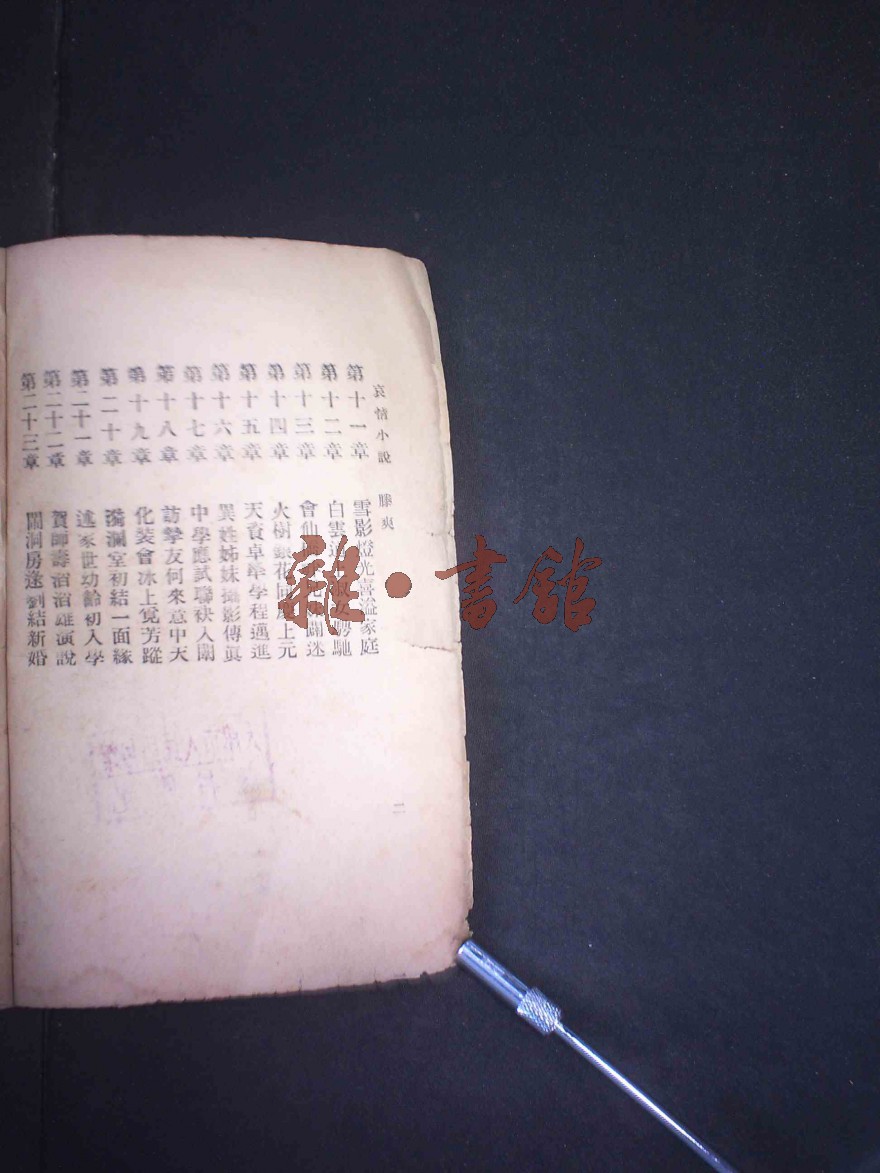 哀情小說 滕爽
第十一章 雪影燈光喜溢家庭
第十二章 白雲淑女騁馳
第十三章 會仙鬧迷
第十四章 火樹銀花回上元
第十五章 天資卓犖學程邁進
第十六章 異姓姊妹攝影傳眞
第十七章 中學應試聯袂入闈
第十八章 訪摯友何來意中天
第十九章 化裝會冰上覓芳蹤
第二十章 漪瀾堂初結一面緣
第二十一章 述家世幼齡初入學
第二十二章 賀師壽治雄演說
第二十三章 鬧洞房逢劉結新婚
二
雜·書館